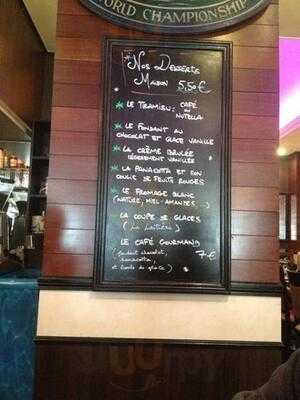 WORLD CHAMPIONSHIP
Nos Desserts
Maison 5,50€
Le Tiramisu : café
ou
nutella
Le Fondant au
chocolat et glace vanille
La crème brûlée
légèrement vanillée
La panacotta et son
coulis de fruits rouges
Le fromage blanc
(nature, miel-amandes ...)
La coupe de glaces
(La Laitière)
Le café gourmand
7€
(fondant chocolat,
panacotta,
et boule de glace)